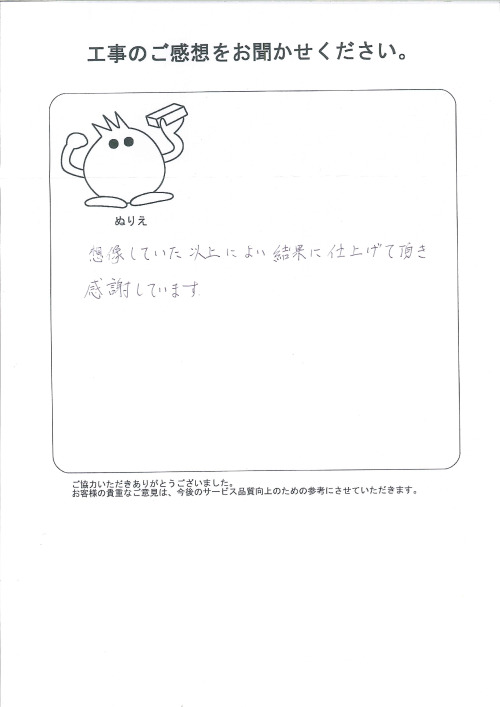 工事のご感想をお聞かせください。
ぬりえ
想像していた以上によい結果に仕上げて頂き
感謝しています
ご協力いただきありがとうございました。
お客様の貴重なご意見は、今後のサービス品質向上のための参考にさせていただきます。